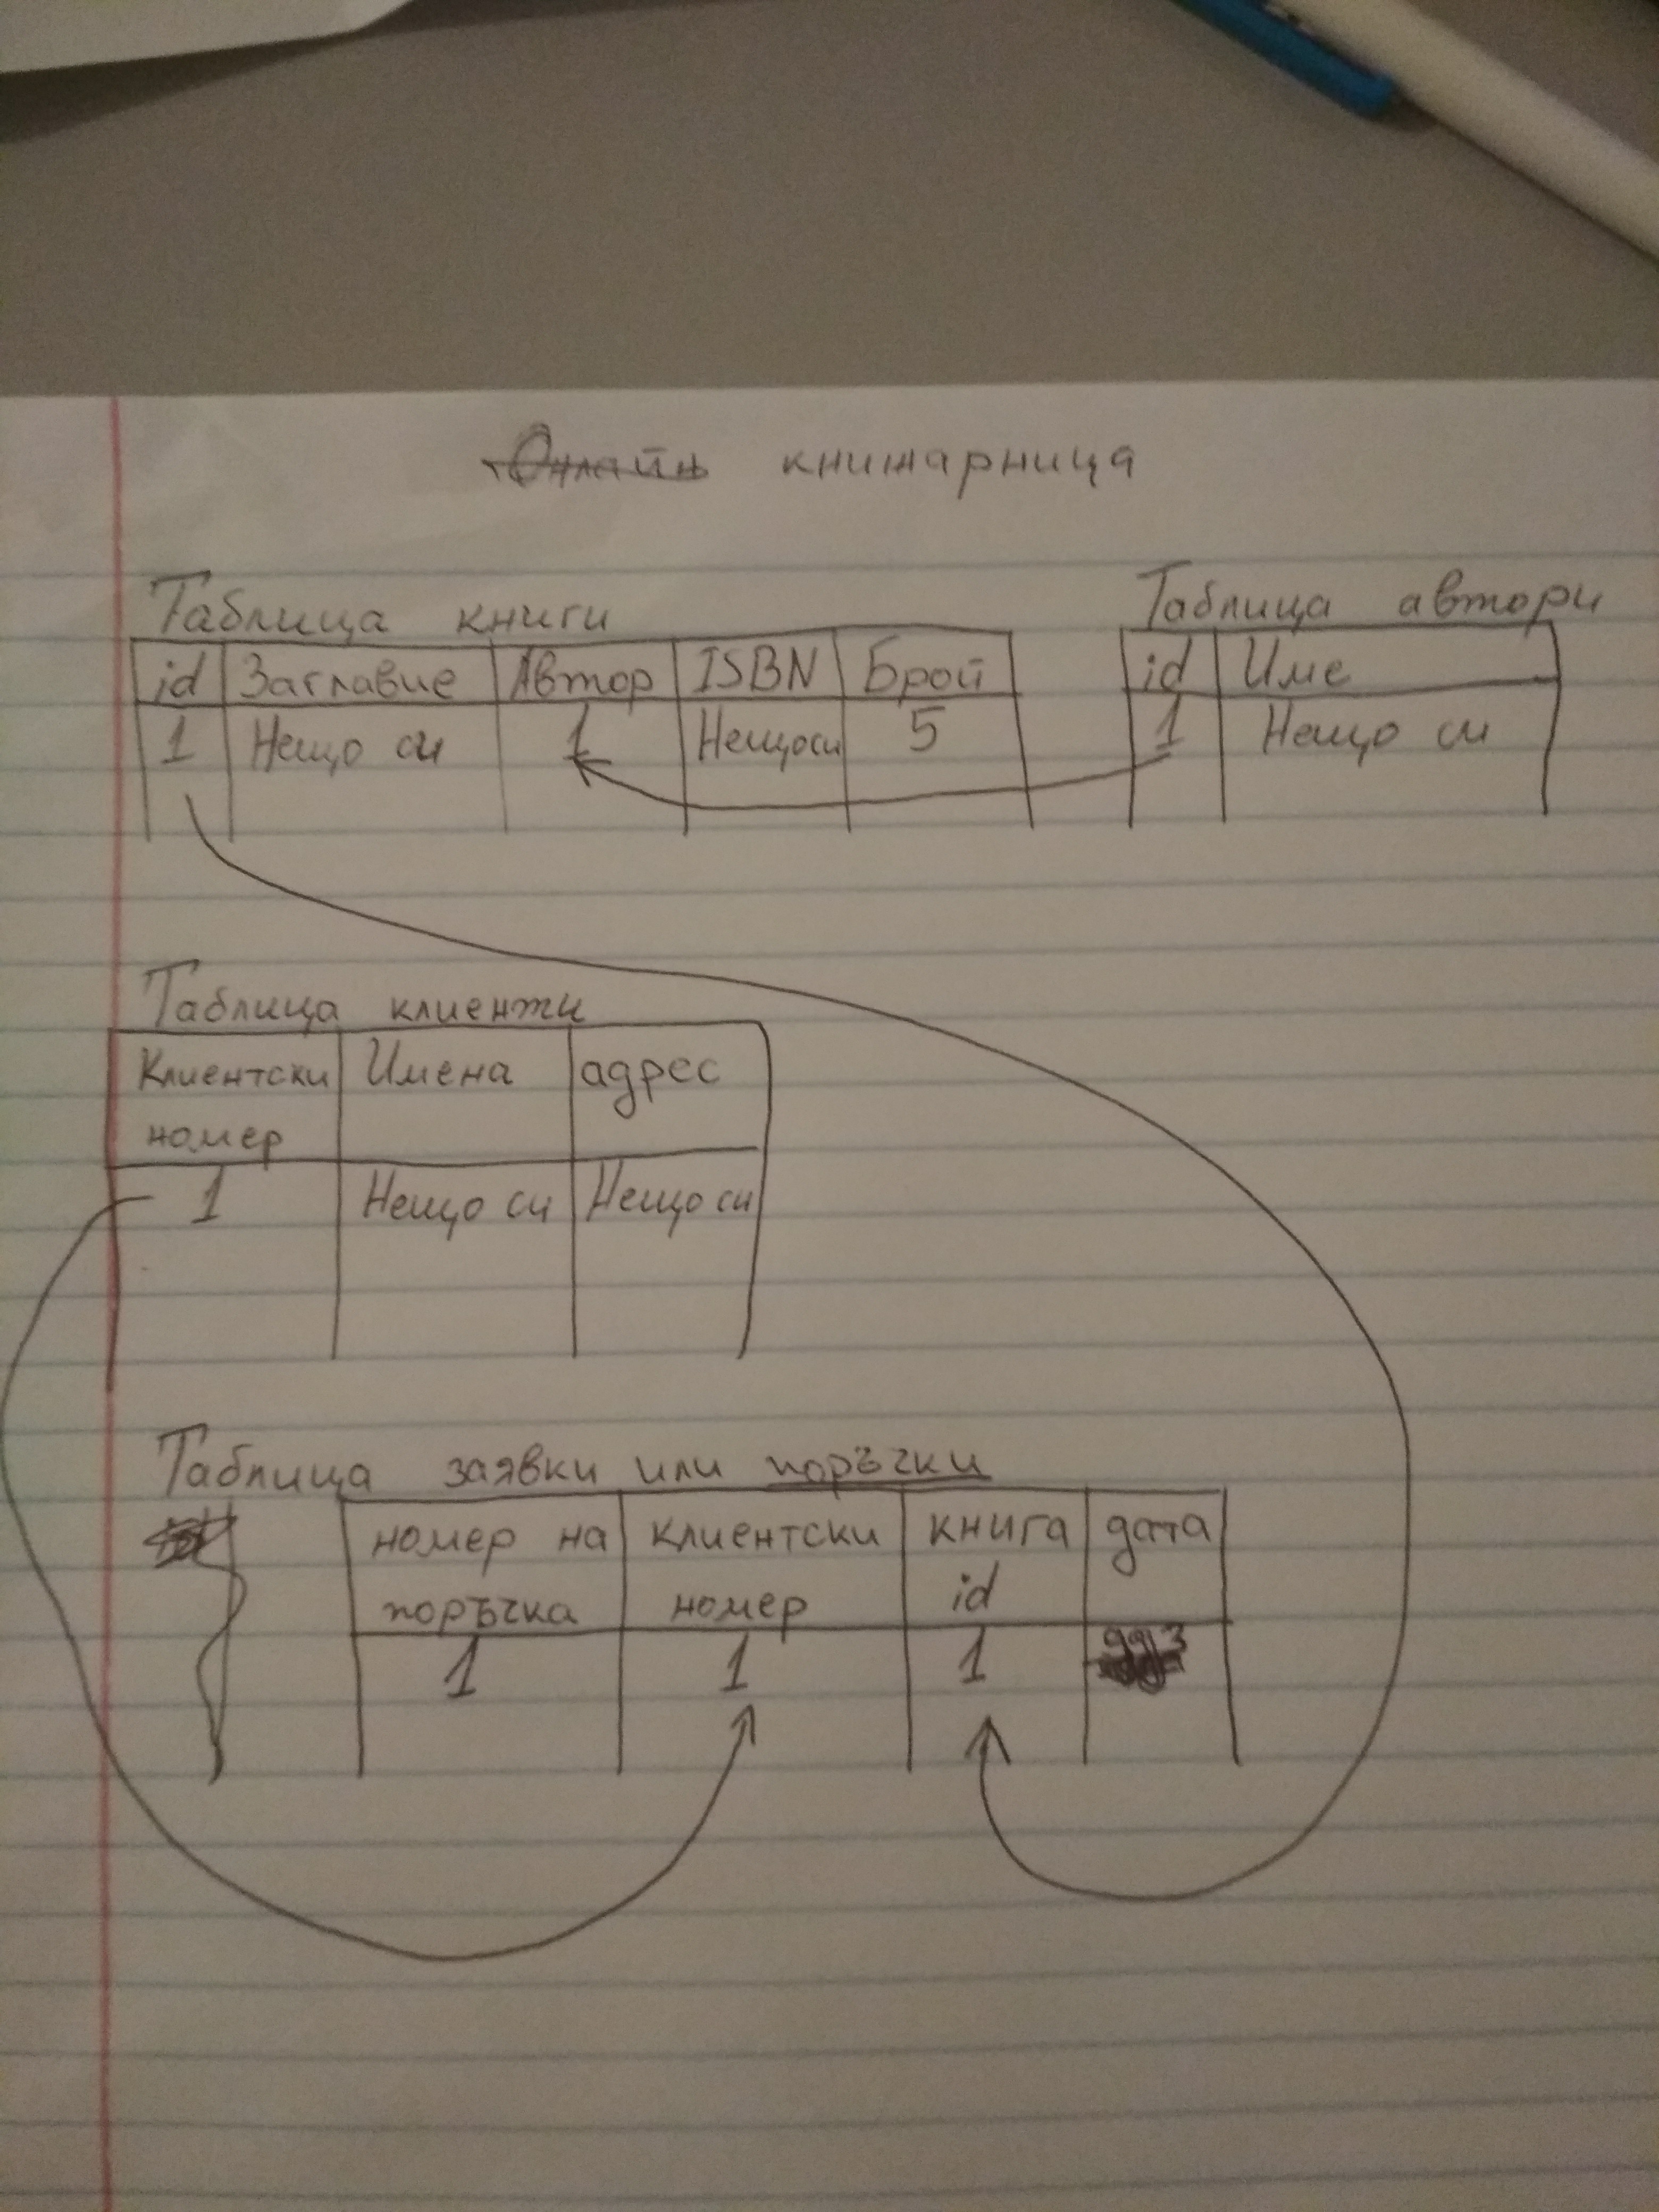 Онлайн книжарница
Таблица книги
id Заглавие Автор ISBN Брой
1 Нещо си 1 Нещоси 5
Таблица автори
id Име
1 Нещо си
Таблица клиенти
Клиентски Имена адрес
номер
1 Нещо си Нещо си
Таблица заявки или поръчки
номер на клиентски книга дата
поръчка номер id
1 1 1